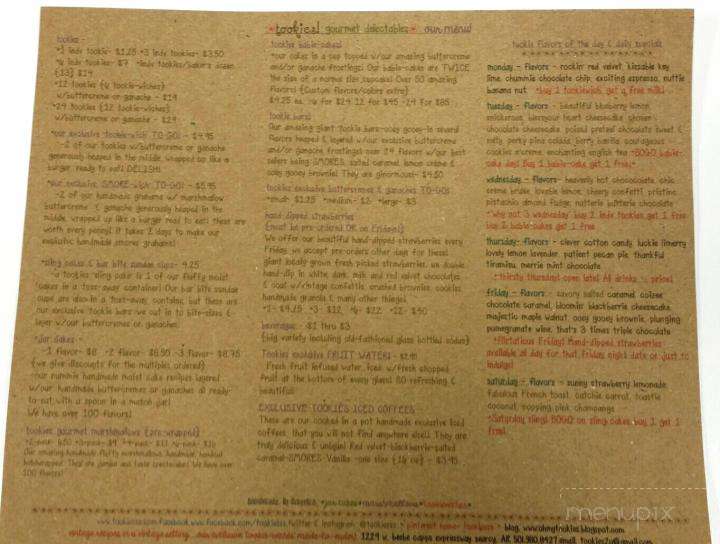 tookies! gourmet delectables • our menu
tookies -
*1 indv tookie- $1.25 *3 indv tookies- $3.50
*12 tookies (6 tookie-wiches)
w/buttercreme or ganache - $19
*24 tookies (12 tookie-wiches)
w/buttercreme or ganache - $29
*our exclusive tookie-wich TO-GO! - $4.95
-2 of our tookies w/buttercreme or ganache
generously heaped in the middle, wrapped up like a
burger ready to eat! DELISH!
*our exclusive SMORE-wich TO-GO! - $5.95
-2 of our handmade grahams w/ marshmallow
buttercreme & ganache generously heaped in the
middle, wrapped up like a burger read to eat! these are
worth every penny! it takes 2 days to make our
realistic handmade smores grahams!
*sling cakes & bar bits sundae cups- 4.25
-a tookies sling cake is 1 of our fluffy moist
cakes in a toss-away container! Our bar bits sundae
cups are also in a toss-away container, but these are
our exclusive tookie bars we cut in to bite-sizes &
layer w/our buttercremes or ganaches.
*Jar cakes -
-1 flavor- $8 -2 flavor- $8.50 -3 flavor- $8.75
(we give discounts for the multiples ordered)
-our nummie handmade moist cake recipes layered
w/our handmade buttercremes or ganaches all ready-
to eat with a spoon in a match jar!
We have over 100 flavors!
tookies gourmet marshmallows (pre-wrapped)
100 flavors!
tookies bable-cakes!
*our cakes in a cup topped w/our amazing buttercreme
and/or ganache frostings! Our bable-cakes are TWICE
the size of a normal size cupcake! Over 50 amazing
flavors (Custom flavors/colors extra)
tookie bars!
Our amazing giant tookie bars-ooey gooey-in several
flavors heaped & layered w/our exclusive buttercreme
and/or ganache frostings! over 24 flavors w/our best
sellers being SMORES, salted caramel, lemon creme &
ooey gooey brownie! They are ginormous!- $4.50
tookies exclusive buttercremes & ganaches TO-GO!
*small- $1.25 *medium- $2 *large- $3
hand dipped strawberries
(must be pre-ordered OR on Fridays!)
We offer our beautiful hand-dipped strawberries every
Friday, we accept pre-orders other days for these!
giant locally grown fresh picked strawberries, we double
hand-dip in white, dark, milk and red velvet chocolates
& coat w/vintage confettis, crushed brownies, cookies,
handmade granola & many other things!
*1- $4.25 *3- $12, *6- $22, *12- $50
beverages - $1 thru $3
(big variety including old-fashioned glass bottled sodas!)
Tookies exclusive FRUIT WATER! - $2.95
Fresh fruit infused water, iced w/fresh chopped
fruit at the bottom of every glass! SO refreshing &
beautiful!
EXCLUSIVE TOOKIES ICED COFFEES
These are our cooked in a pot handmade exclusive iced
coffees, that you will not find anywhere else!! They are
truly delicious & unique! Red velvet-blackberrie-salted
caramel-SMORES-Vanilla -one size (16 oz) - $3.95
tookie flavors of the day & daily specials
monday - flavors - rockin' red velvet, kissable key
lime, chummie chocolate chip, exciting espresso, nuttie
banana nut *buy 2 tookiewich, get a free milk!
tuesday - flavors - beautiful blueberry lemon,
cheesecake, poised pretzel chocolate sweet &
cookies n'creme, enchanting english tea *BOGO bable-
cake day! Buy 1 bable-cake get 1 free!*
wednesday - flavors- heavenly hot chocolatee, chic
creme brulee, lovable lemon, cheery confetti, pristine
pistachio almond fudge, nutterie butterie chocolate
*why not 3 wednesday! buy 2 indv tookies get 1 free
buy 2 bable-cakes get 1 free
thursday- flavors - clever cotton candy, luckie limerry
lovely lemon lavender, patient pecan pie, thankful
tiramisu, merrie mint chocolate
*thirsty thursday! open late! All drinks ½ price!
friday - flavors - savory salted caramel,
chocolate caramel, bloomin' blackberrie cheesecake,
majestic maple walnut, ooey gooey brownie, plunging
pomegranate wine, that's 3 times triple chocolate
*Flirtatious Friday! Hand-dipped strawberries
available all day for that friday night date or just to
indulge!
saturday - flavors - sunny strawberry lemonade,
fabulous french toast, catchie carrot, toastie
coconut, popping pink champange
*Saturday sling! BOGO on sling cakes, buy 1 get 1
free!
handmade in America
www.tookies2u.com facebook www.facebook.com/tookiess twitter & instagram @tookiess • pinterest tamer tookiess • blog. www.ohmytookies.blogspot.com
1229 w. beebe capps expressway searcy, AR 501.980.8427 email. tookies2u@gmail.com
menupix